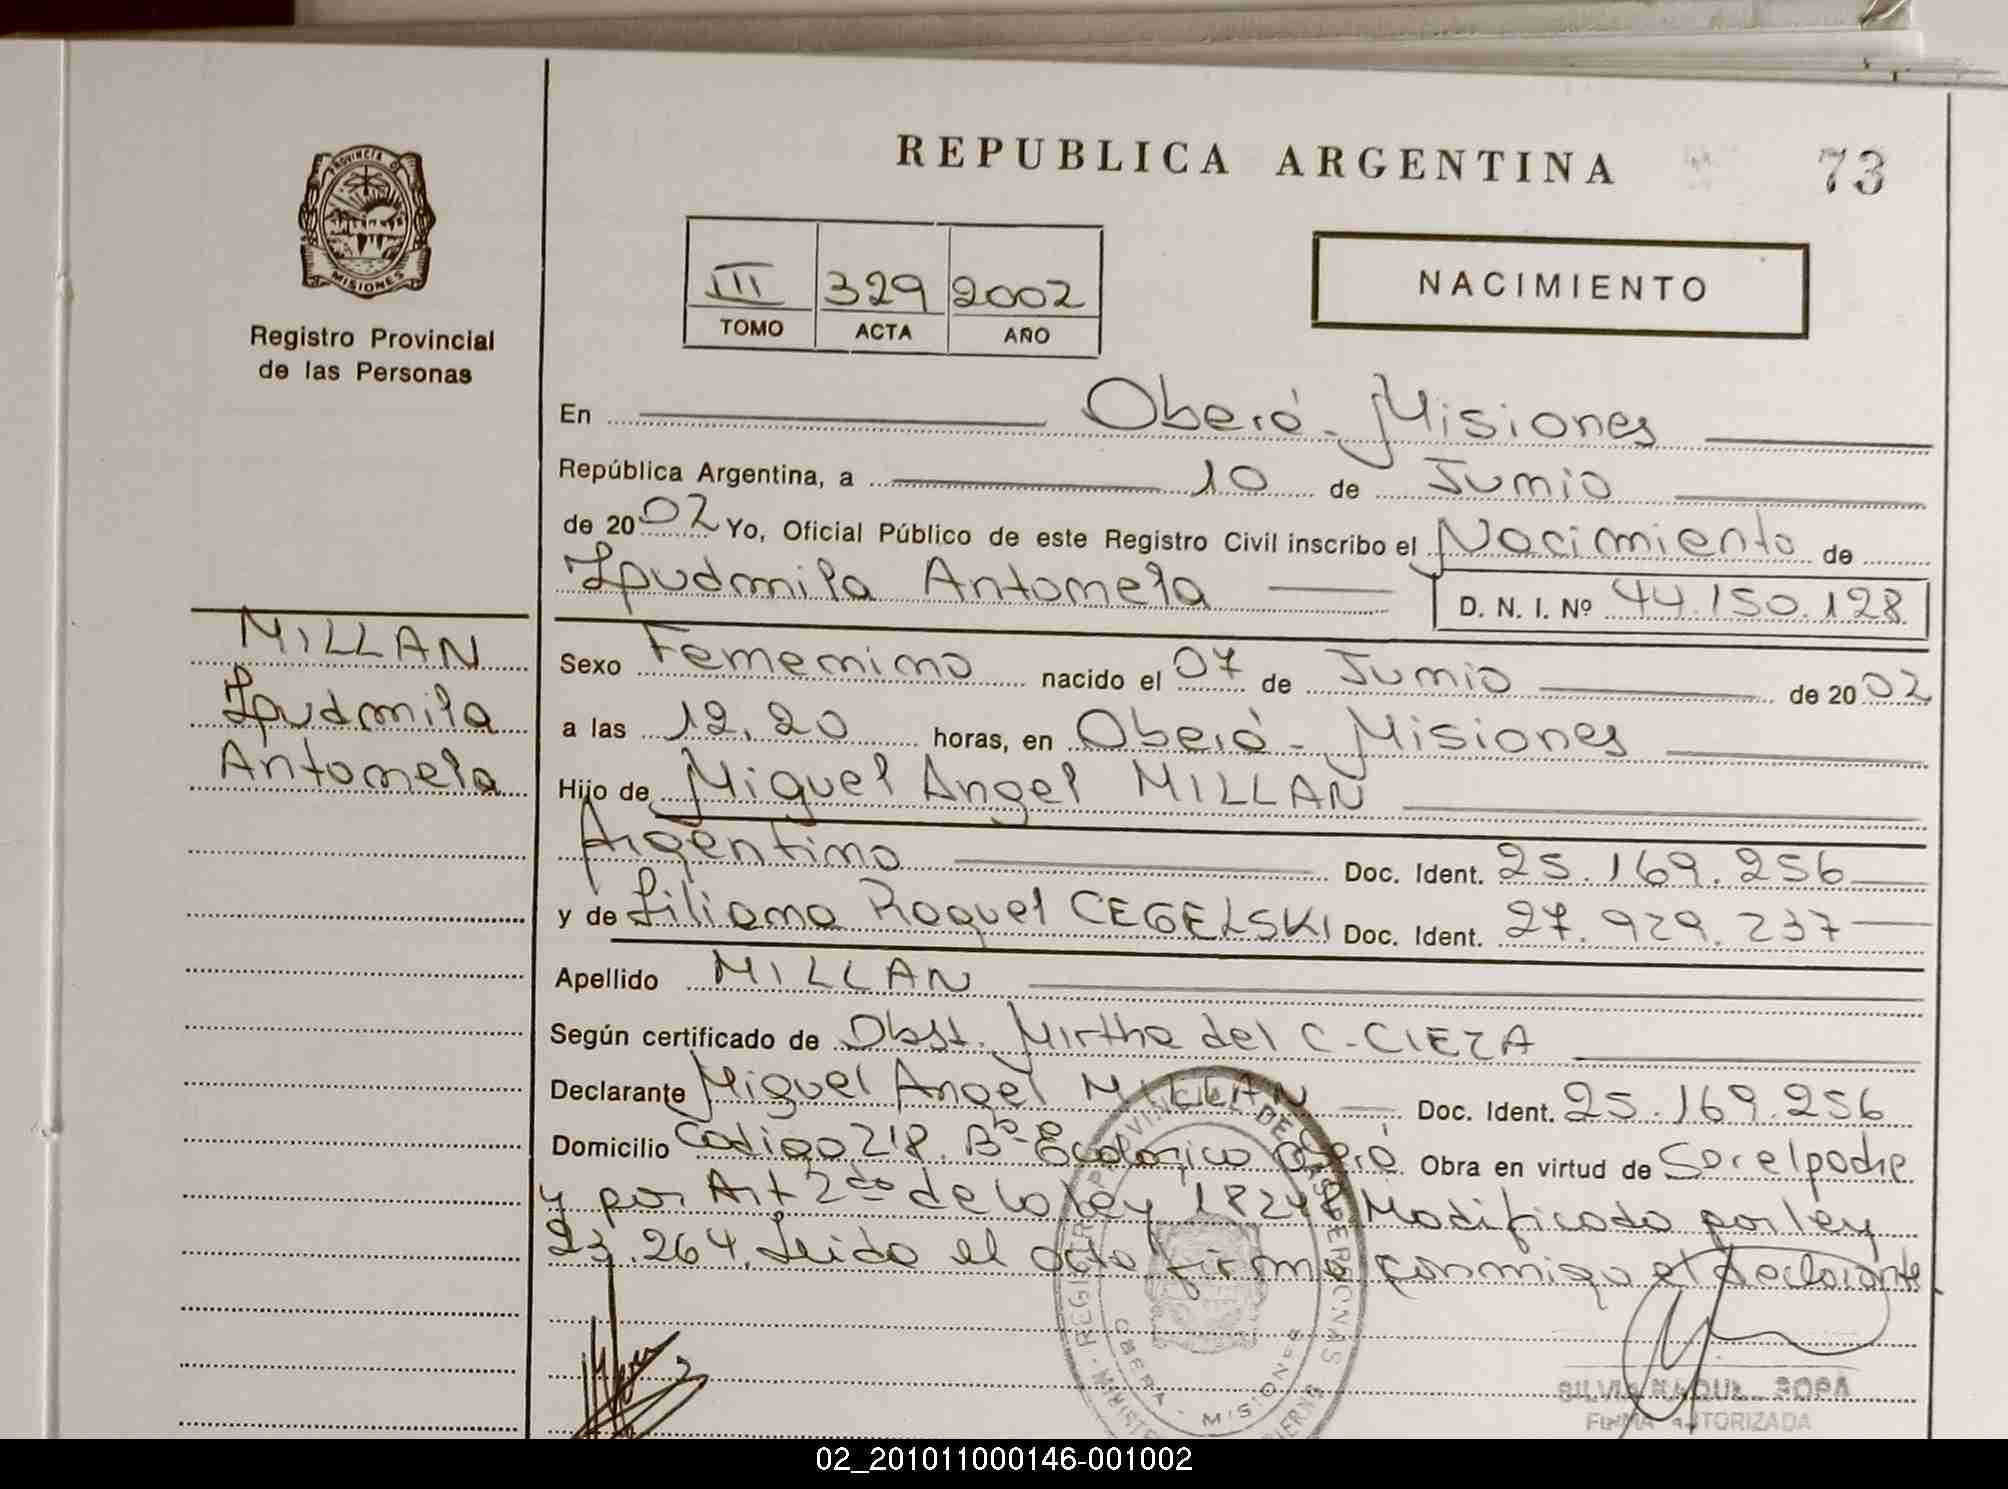 REPUBLICA ARGENTINA
73
PROVINCIA DE
MISIONES
Registro Provincial
de las Personas
III 329 2002
TOMO ACTA AÑO
NACIMIENTO
En Oberá - Misiones
República Argentina, a 10 de Junio
de 2002 Yo, Oficial Público de este Registro Civil inscribo el Nacimiento de
Ludmila Antonela
D. N. I. Nº 44.150.128
MILLAN
Ludmila
Antonela
Sexo Femenino nacido el 07 de Junio de 2002
a las 12.20 horas, en Oberá - Misiones
Hijo de Miguel Angel MILLAN
Argentino Doc. Ident. 25.169.256
y de Liliana Raquel CEGELSKI Doc. Ident. 27.929.237
Apellido MILLAN
Según certificado de Obst. Mirtha del C. CIEZA
Declarante Miguel Angel MILLAN Doc. Ident. 25.169.256
Domicilio Codigo 218. Bº Ecologico Oberá Obra en virtud de Ser el padre
y por Art 2do de la ley 18248 Modificado por ley
23.264. Leido el acta firma conmigo el declarante
OBERA - MISIONES
FIRMA AUTORIZADA
02_201011000146-001002